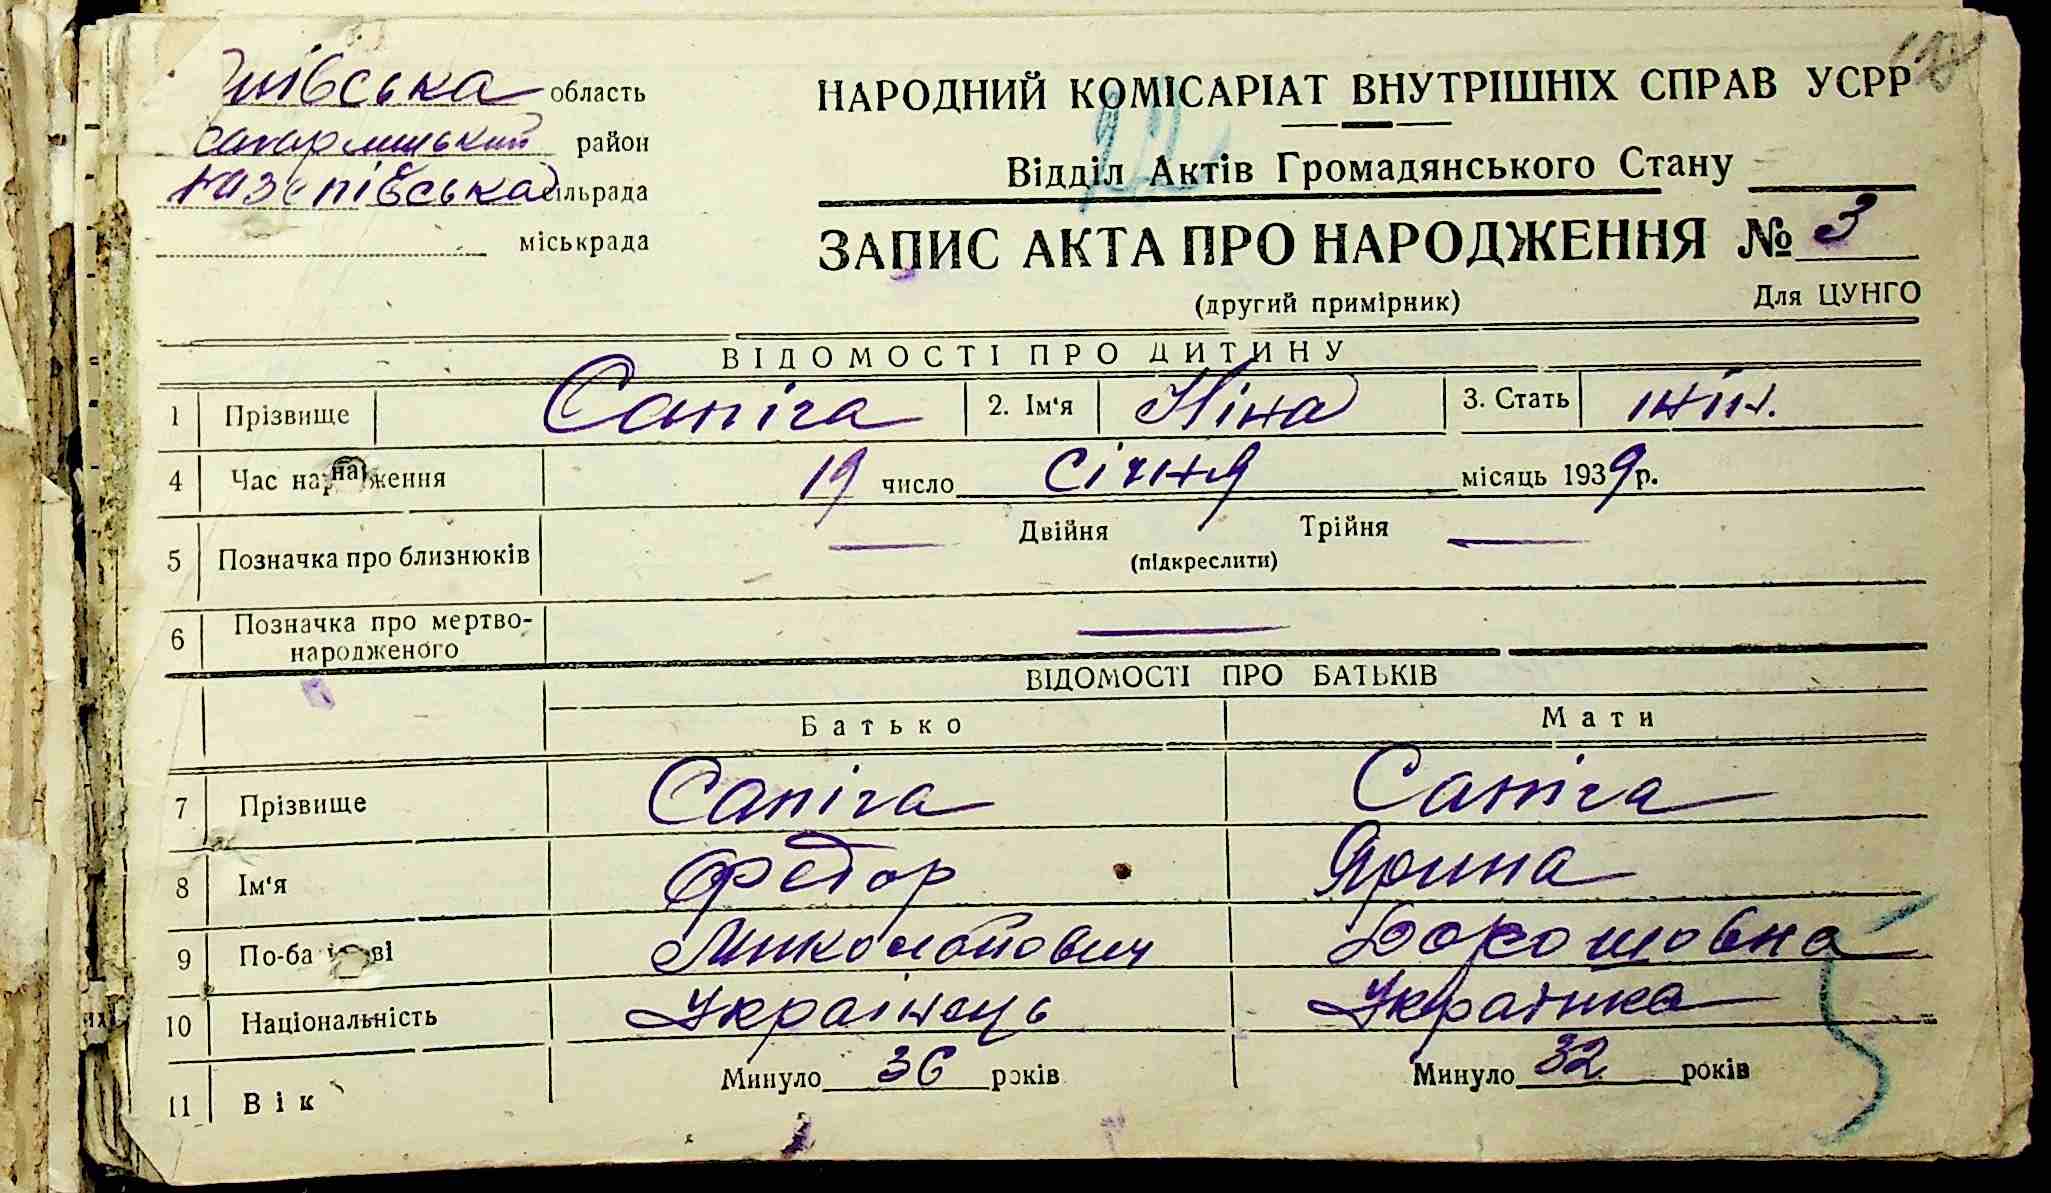 область
район
сільрада
міськрада
НАРОДНИЙ КОМІСАРІАТ ВНУТРІШНІХ СПРАВ УСРР
Відділ Актів Громадянського Стану
ЗАПИС АКТА ПРО НАРОДЖЕННЯ № 3
(другий примірник) Для ЦУНГО
ВІДОМОСТІ ПРО ДИТИНУ
1 Прізвище Сапіга 2. Ім'я Ніна 3. Стать жін.
4 Час народження 19 число січня місяць 1939 р.
5 Позначка про близнюків Двійня Трійня
(підкреслити)
6 Позначка про мертво-
народженого
ВІДОМОСТІ ПРО БАТЬКІВ
Батько Мати
7 Прізвище Сапіга Сапіга
8 Ім'я Федор Ярина
9 По-батькові Миколайович
10 Національність Українець Українка
11 Вік Минуло 36 років Минуло 32 років